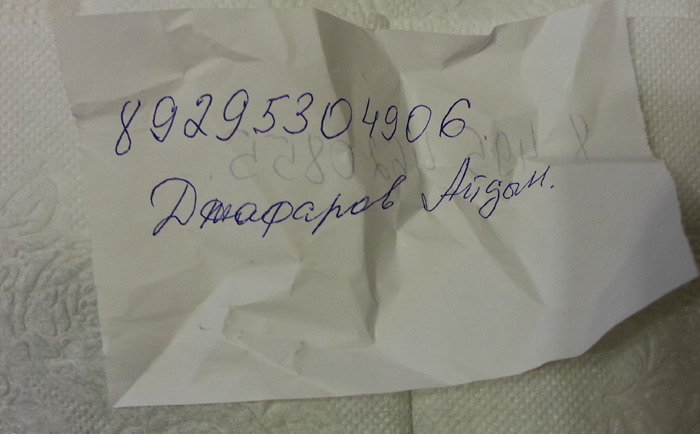 89295304906.
Джафаров Айдын.